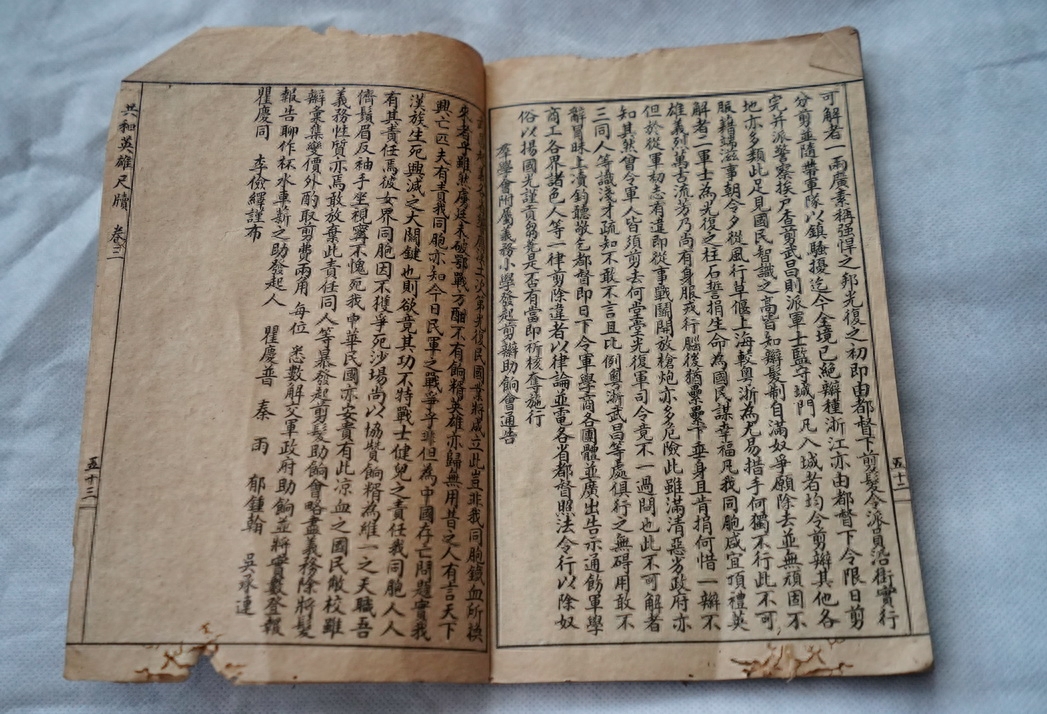 可解者一兩廣素稱强悍之邦光復之初即由都督下剪髮令派員沿街實行
分剪並隨帶軍隊以鎮騷擾迄今全境已絕辮種浙江亦由都督下令限日剪
完并派警察挨戶查剪武昌則派軍士監守城門凡入城者均令剪辮其他各
地亦多類此足見國民智識之高皆知辮髮制自滿奴爭願除去並無頑固不
服藉端滋事朝令夕從風行草偃上海較粵浙為尤易措手何獨不行此不可
解者二軍士為光復之柱石誓捐生命為國民謀幸福凡我同胞咸宜頂禮英
雄義烈萬古流芳乃尚有身服戎行腦後猶纍纍下垂身且肯捐何惜一辮不
但於從軍初志有違即從事戰鬬開放槍炮亦多危險此雖滿清惡劣政府亦
知其然曾令軍人皆須剪去何堂堂光復軍司令竟不一過問也此不可解者
三同人等識淺才疏知不敢不言且比例粵浙武昌等處俱行之無碍用敢不
辭冒昧上瀆鈞聽敬乞都督即日下令軍學商各團體並廣出告示通飭軍學
商工各界諸色人等一律剪除違者以律論並電各省都督照法令行以除奴
俗以揚國光謹貢芻蕘是否有當即祈核奪施行
羣學會附屬義務小學發起剪辮助餉會通告
次第光復民國業將成立此豈非我同胞鐵血所換
來者乎雖然虜廷未破鄂戰方酣不有餉糈英雄亦歸無用昔之人有言天下
興亡匹夫有責我同胞亦知今日民軍之戰爭乎非但為中國存亡問題實我
漢族生死興滅之大關鍵也則欲竟其功不特戰士健兒之責任我同胞人人
有其責任焉彼女界同胞因不獲爭死沙場尚以協贊餉糈為維一之天職吾
儕鬚眉反袖手坐視寧不愧死我中華民國亦安貴有此凉血之國民敝校雖
義務性質亦焉敢放棄此責任同人等暴發起剪髮助餉會略盡義務除將髮
辮彙集變價外酌取剪費兩角每位悉數解交軍政府助餉並將實數登報
報告聊作杯水車薪之助發起人 瞿慶普 秦雨 郁鍾翰 吳承連
瞿慶同 李儉繹謹布
共和英雄尺牘 卷三
五十三
五十二